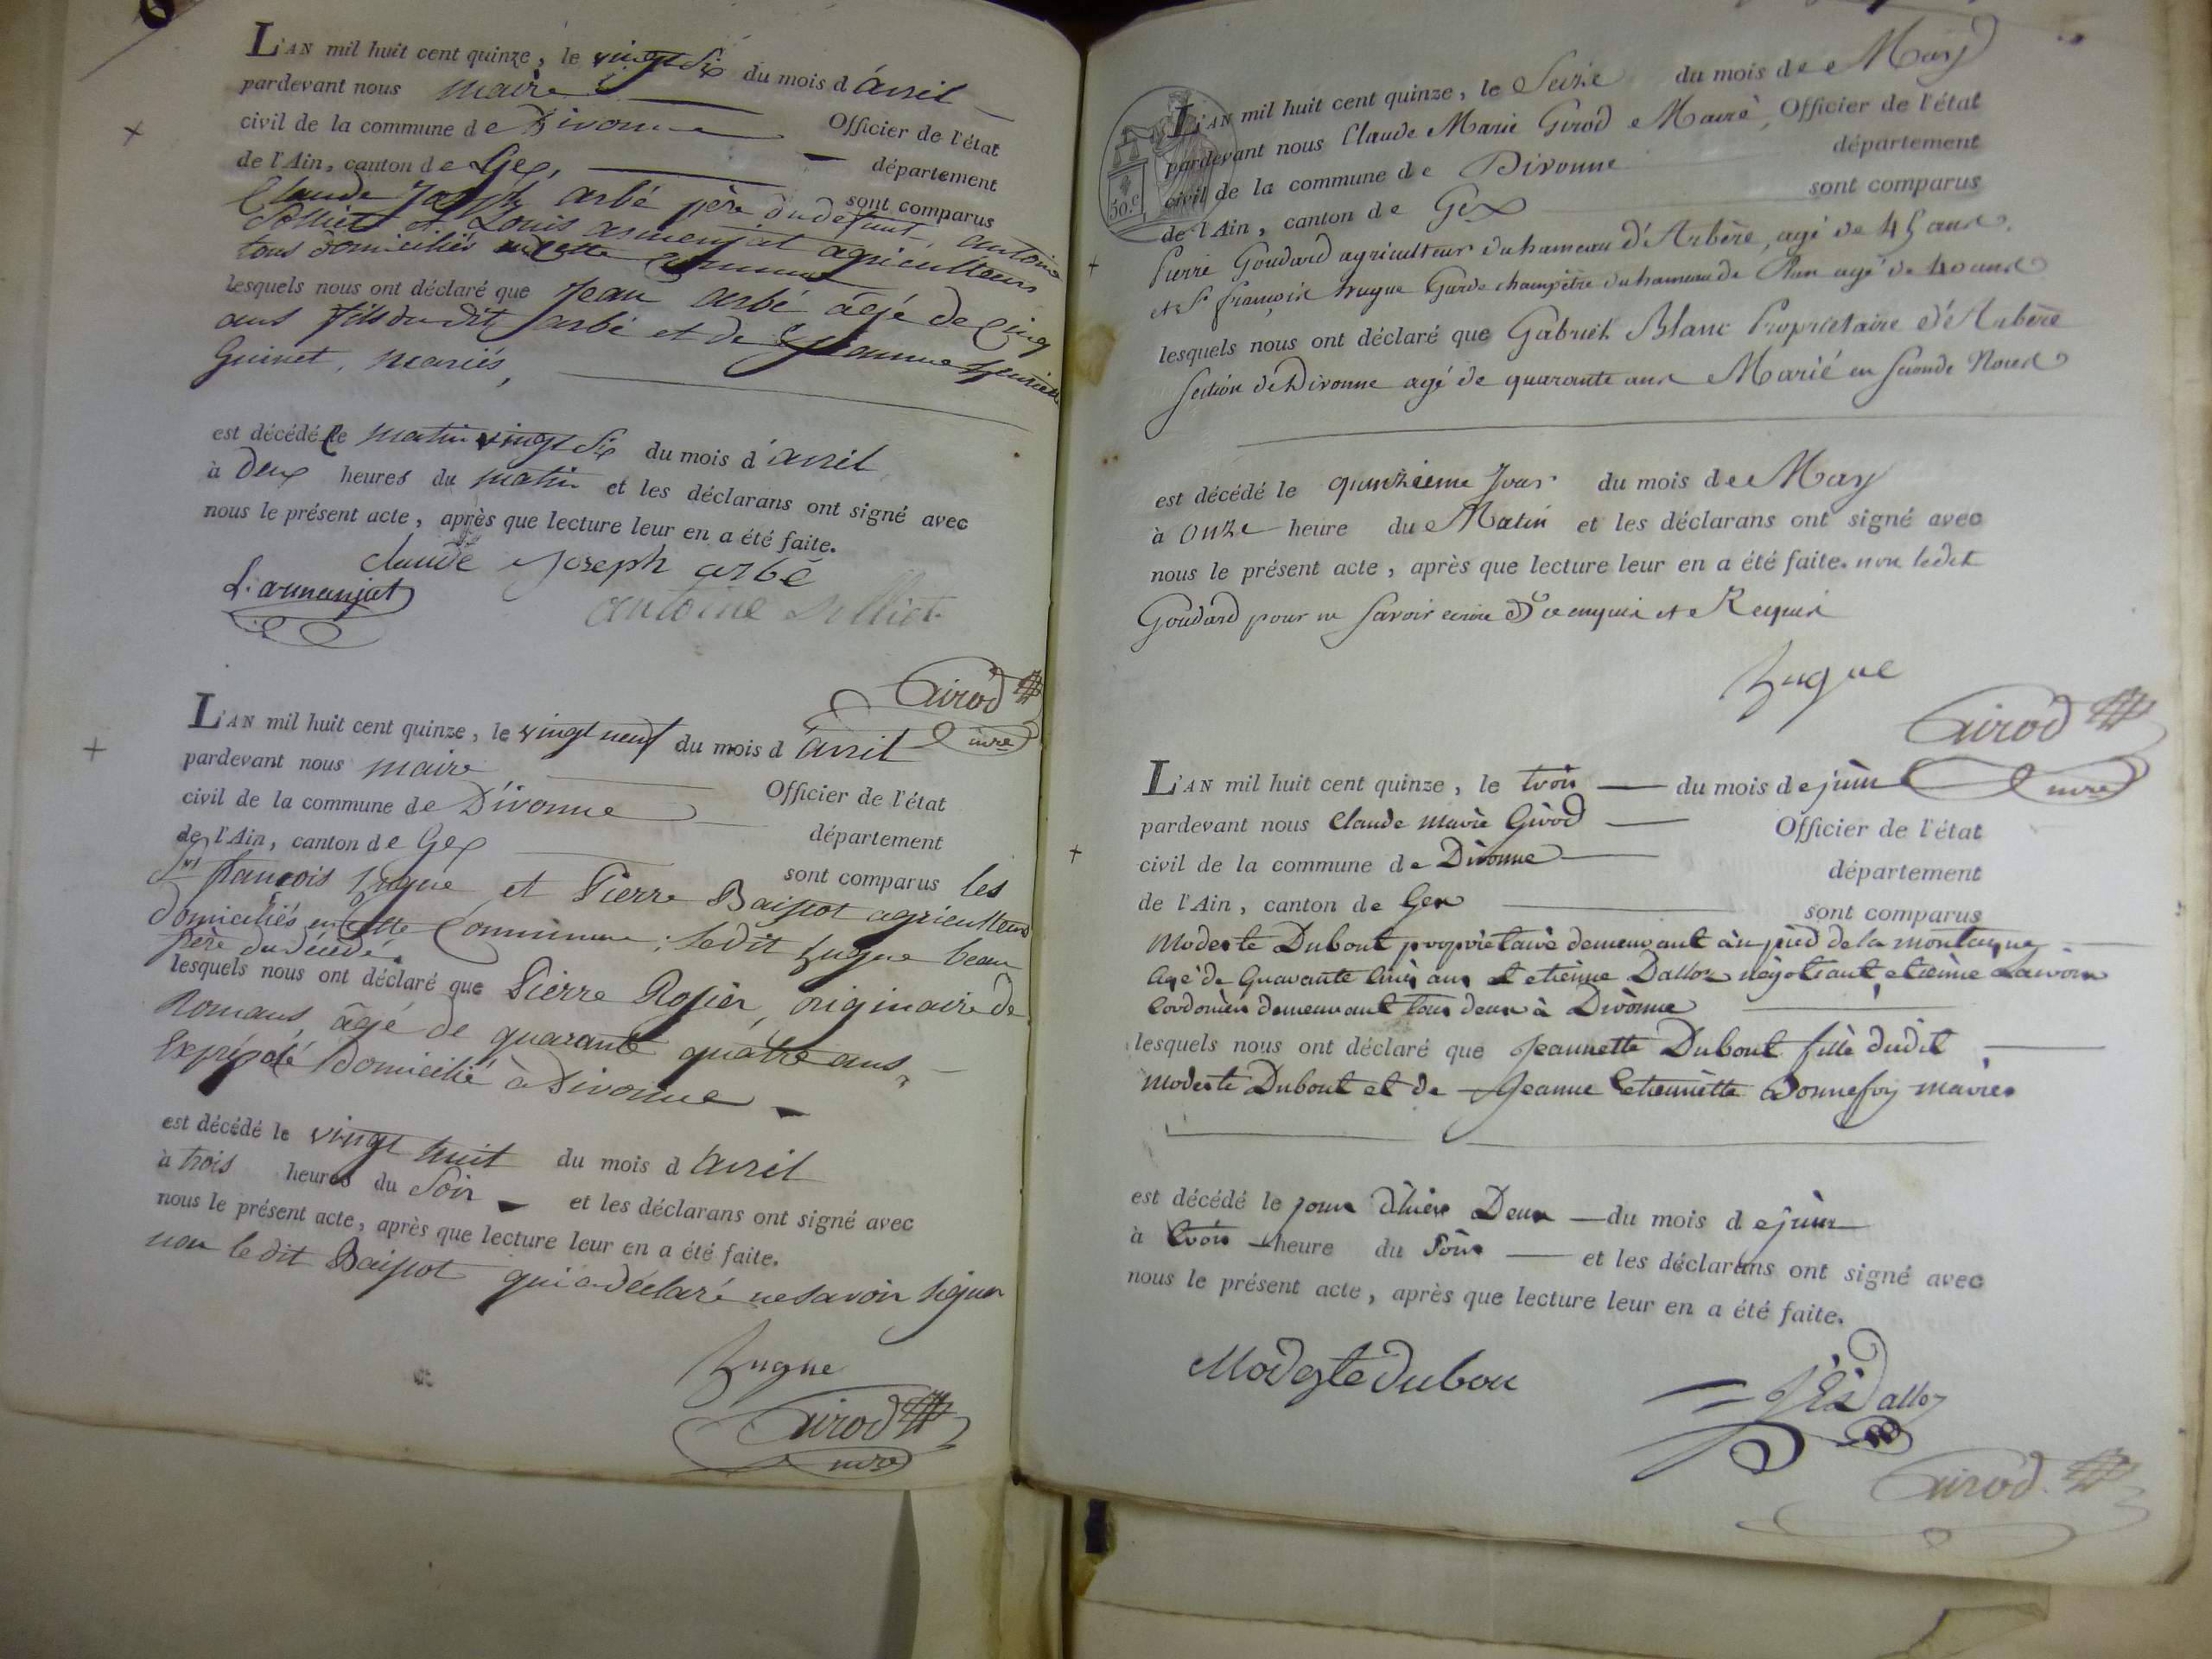 L'AN mil huit cent quinze, le vingt Six du mois d'avril
pardevant nous maire Officier de l'état
civil de la commune de Divonne département
de l'Ain, canton de Gex, sont comparus
Claude Joseph arbé père du defunt, antoine
Solliet et Louis armenjat agriculteurs
tous domiciliés en cette Commune
lesquels nous ont déclaré que Jean arbé âgé de Cinq
ans fils du dit arbé et de Jeanne
Guinet, mariés,
est décédé le matin vingt Six du mois d'avril
à deux heures du matin et les déclarans ont signé avec
nous le présent acte, après que lecture leur en a été faite.
claude Joseph arbé
L. armanjat
antoine Solliet
Girod
mre
L'AN mil huit cent quinze, le vingt neuf du mois d'avril
pardevant nous maire Officier de l'état
civil de la commune de Divonne département
de l'Ain, canton de Gex sont comparus les
Srs françois hugue et Pierre Baissot agriculteurs
domiciliés en cette Commune; le dit hugue beau
père du décédé.
lesquels nous ont déclaré que Pierre Rosier, originaire de
Romans âgé de quarante quatre ans,
domicilié à Divonne
est décédé le vingt huit du mois d'avril
à trois heures du Soir et les déclarans ont signé avec
nous le présent acte, après que lecture leur en a été faite.
non le dit Baissot qui a déclaré ne savoir signer
hugue
Girod
mre
50.c
L'AN mil huit cent quinze, le Seize du mois de May
pardevant nous Claude Marie Girod Maire, Officier de l'état
civil de la commune de Divonne département
de l'Ain, canton de Gex sont comparus
Pierre Goudard agriculteur du hameau d'Arbère, agé de 45 ans.
et Sr françois hugue Garde champêtre du hameau de Plan agé de 40 ans
lesquels nous ont déclaré que Gabriel Blanc Propriétaire d'Arbère
Section de Divonne agé de quarante ans Marié en Seconde Noces
est décédé le quinzieme Jour du mois de May
à onze heure du Matin et les déclarans ont signé avec
nous le présent acte, après que lecture leur en a été faite. non ledit
Goudard pour ne Savoir ecrire de ce enquis et Requis
hugue
Girod
mre
L'AN mil huit cent quinze, le trois du mois de juin
pardevant nous Claude marie Girod Officier de l'état
civil de la commune de Divonne département
de l'Ain, canton de Gex sont comparus
Modeste Dubout propriétaire demeurant au pied de la montagne
agé de quarante cinq ans et etienne Dalloz négotiant, etienne
Cordonier demeurant tous deux à Divonne
lesquels nous ont déclaré que Jeannette Dubout fille dudit
Modeste Dubout et de Jeanne etiennette Bonnefoy mariés
est décédé le jour d'hier Deux du mois de juin
à trois heure du Soir et les déclarans ont signé avec
nous le présent acte, après que lecture leur en a été faite.
Modeste dubou
Dalloz
Girod